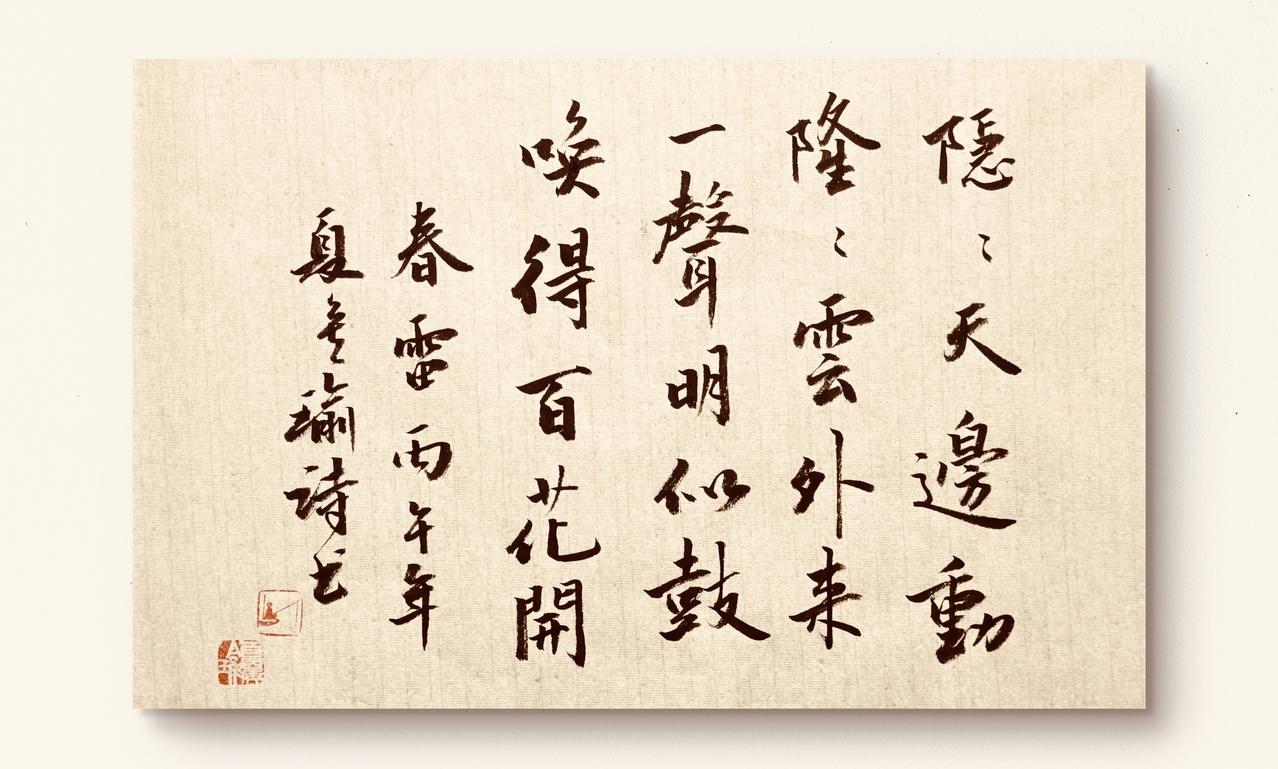 隱〻天邊動
隆〻雲外来
一聲明似鼓
喚得百花開
春雷丙午年
夏瑜詩书